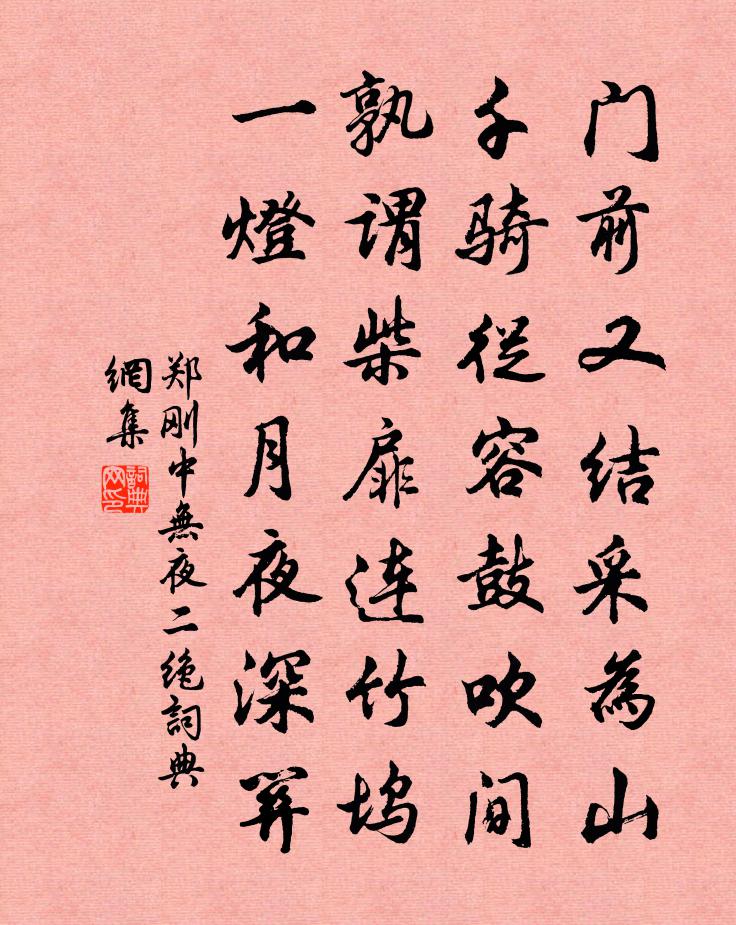 门前又结采為山
千骑從容鼓吹间
孰谓柴扉连竹坞
一燈和月夜深関
郑刚中無夜二绝詞典
網集
詞典
网印